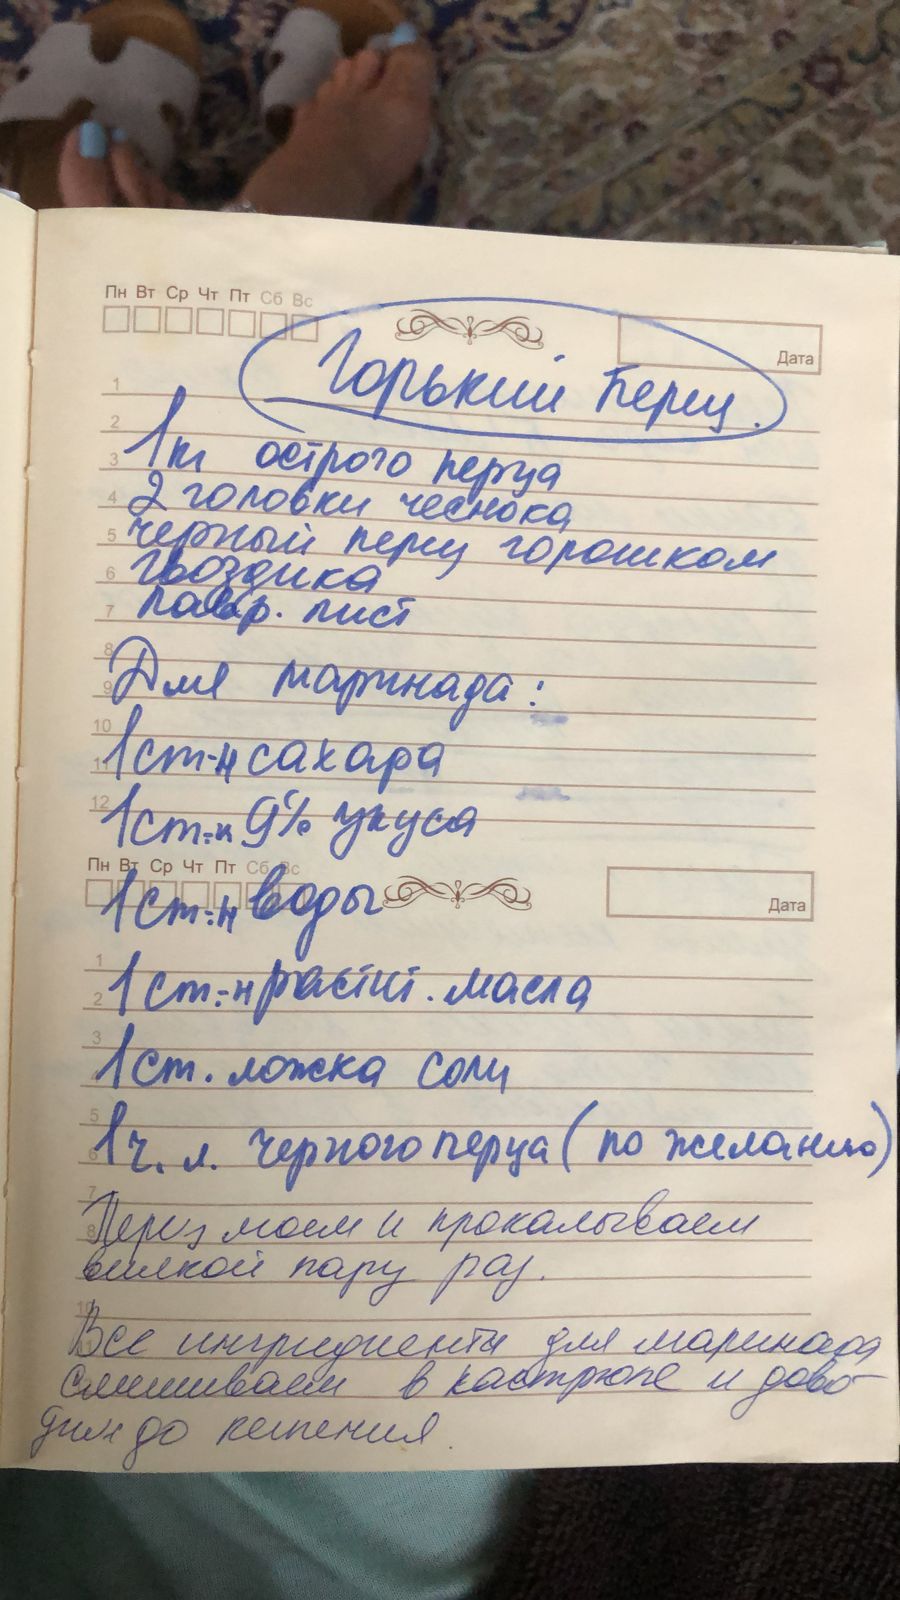 Пн Вт Ср Чт Пт Сб Вс
Дата
Горький перец.
1
2
1кг острого перца
3
2 головки чеснока
4
черный перец горошком
5
гвоздика
6
лавр. лист
7
8
Для маринада:
9
10
1 ст-н сахара
11
12
1 ст-н 9% уксуса
Пн Вт Ср Чт Пт Сб Вс
Дата
1 ст-н воды
1
1 ст-н растит. масла
2
3
1 ст. ложка соли
5
1 ч. л. черного перца (по желанию)
6
7
Перец моем и прокалываем
8
вилкой пару раз.
10
Все ингридиенты для маринада
смешиваем в кастрюле и дово-
дим до кипения.